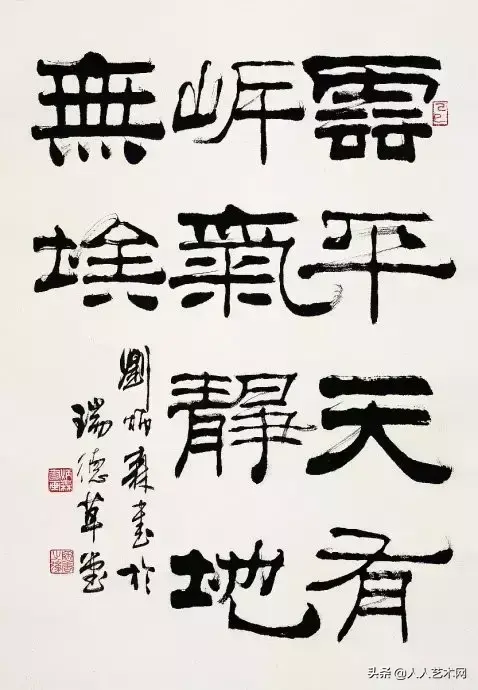 雲平天有
岸氣靜地
無埃
劉炳森書於
瑞德草堂
头条 @人人艺术网